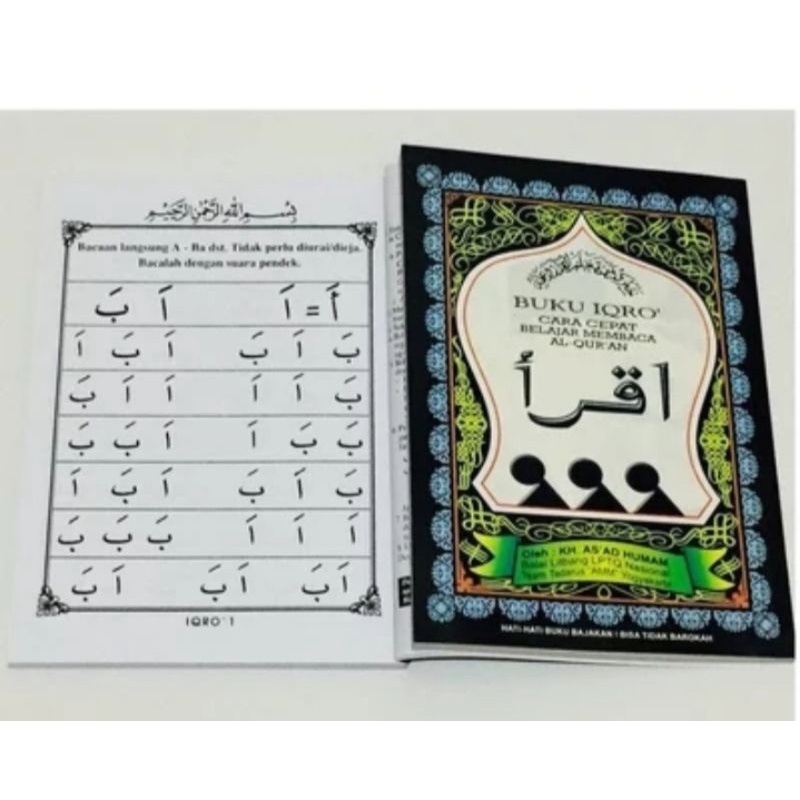 بِسْمِ اللهِ الرَّحْمٰنِ الرَّحِيْمِ
Bacaan langsung A - Ba dst. Tidak perlu diurai/dieja.
Bacalah dengan suara pendek.
أَ = اَ اَ بَ
بَ اَ بَ اَ بَ اَ
بَ اَ اَ اَ اَ بَ
بَ بَ اَ اَ بَ بَ
بَ اَ بَ اَ بَ اَ
اَ اَ اَ بَ بَ بَ
اَ بَ اَ بَ اَ بَ
IQRO' 1
BUKU IQRO'
CARA CEPAT
BELAJAR MEMBACA
AL-QUR'AN
اقرأ
Oleh : KH. AS'AD HUMAM
Balai Litbang LPTQ Nasional
Team Tadarus "AMM" Yogyakarta
HATI HATI BUKU BAJAKAN ! BISA TIDAK BAROKAH